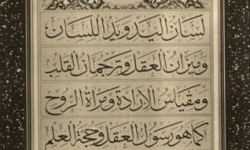 لسان اليد ويد اللسان
وميزان العقل وترجمان القلب
ومقياس الإرادة ومرآة الروح
كما هو رسول العقل وحجة العلم